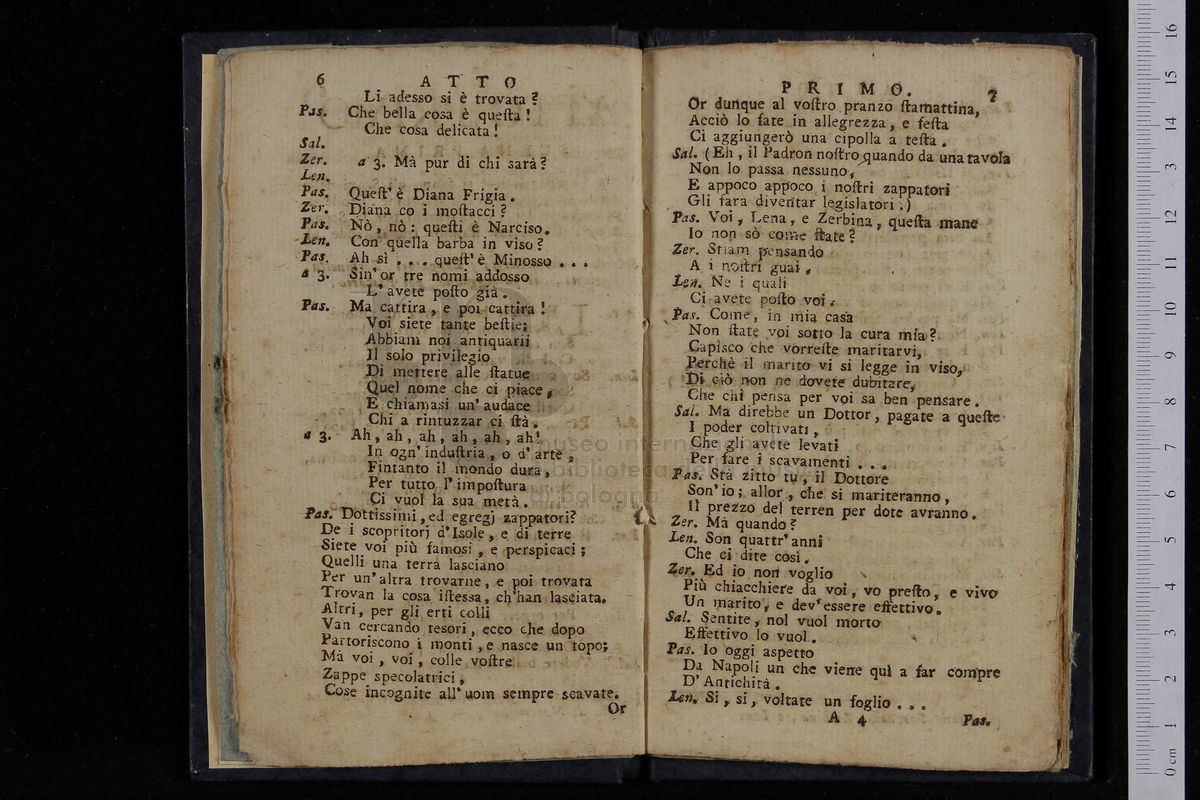 6 ATTO
Li adesso si è trovata?
Pas. Che bella cosa è queſta!
Che cosa delicata!
Sal.
Zer. a 3. Mà pur di chi sarà?
Len.
Pas. Queſt' è Diana Frigia.
Zer. Diana co i moſtacci?
Pas. Nò, nò: queſti è Narciso.
Len. Con quella barba in viso?
Pas. Ah sì . . . queſt' è Minosso . . .
a 3. Sin' or tre nomi addosso
L' avete poſto già.
Pas. Ma cattira, e poi cattira!
Voi siete tante beſtie;
Abbiam noi antiquarii
Il solo privilegio
Di mettere alle ſtatue
Quel nome che ci piace,
E chiamasi un' audace
Chi a rintuzzar ci ſtà.
a 3. Ah, ah, ah, ah, ah, ah!
In ogn' induſtria, o d' arte,
Fintanto il mondo dura,
Per tutto l' impoſtura
Ci vuol la sua metà.
Pas. Dottissimi, ed egregj zappatori?
De i scopritorj d' Isole, e di terre
Siete voi più famosi, e perspicaci;
Quelli una terra lasciano
Per un' altra trovarne, e poi trovata
Trovan la cosa iſtessa, ch'han lasciata.
Altri, per gli erti colli
Van cercando tesori, ecco che dopo
Partoriscono i monti, e nasce un topo;
Mà voi, voi, colle voſtre
Zappe specolatrici,
Cose incognite all' uom sempre scavate.
Or
PRIMO. 7
Or dunque al voſtro pranzo ſtamattina,
Acciò lo fate in allegrezza, e feſta
Ci aggiungerò una cipolla a teſta.
Sal. (Eh, il Padron noſtro quando da una tavola
Non lo passa nessuno,
E appoco appoco i noſtri zappatori
Gli fara diventar legislatori.)
Pas. Voi, Lena, e Zerbina, queſta mane
Io non sò come ſtate?
Zer. Stiam pensando
A i noſtri guai.
Len. Ne i quali
Ci avete poſto voi.
Pas. Come, in mia casa
Non ſtate voi sotto la cura mia?
Capisco che vorreſte maritarvi,
Perchè il marito vi si legge in viso,
Di ciò non ne dovete dubitare,
Che chi pensa per voi sa ben pensare.
Sal. Ma direbbe un Dottor, pagate a queſte
I poder coltivati,
Che gli avete levati
Per fare i scavamenti . . .
Pas. Stà zitto tu, il Dottore
Son' io; allor, che si mariteranno,
Il prezzo del terren per dote avranno.
Zer. Mà quando?
Len. Son quattr' anni
Che ci dite così.
Zer. Ed io non voglio
Più chiacchiere da voi, vo preſto, e vivo
Un marito, e dev' essere effettivo.
Sal. Sentite, nol vuol morto
Effettivo lo vuol.
Pas. Io oggi aspetto
Da Napoli un che viene quì a far compre
D' Antichità.
Len. Si, si, voltate un foglio . . .
A 4 Pas.
museo internazionale
biblioteca della musica
di bologna
0 cm 1 2 3 4 5 6 7 8 9 10 11 12 13 14 15 16